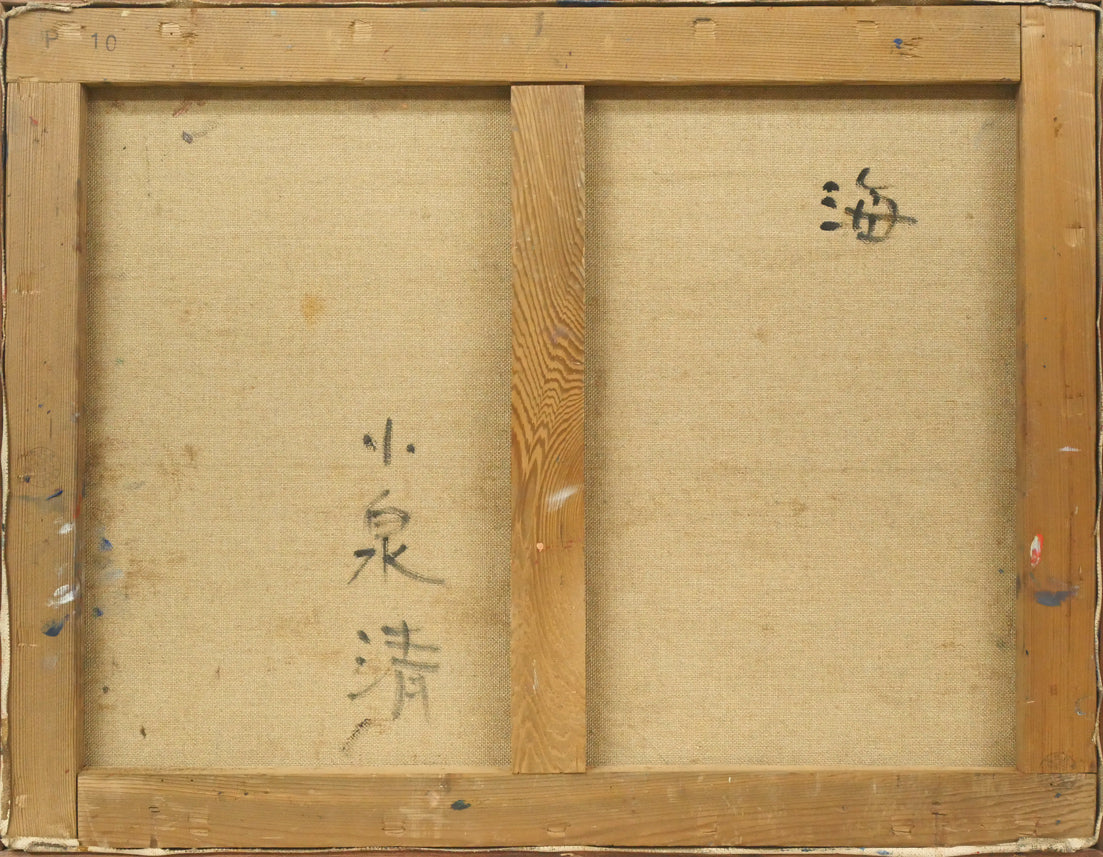 P 10
海
小泉清